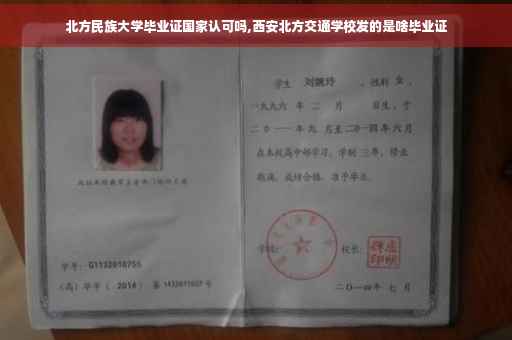 北方民族大学毕业证国家认可吗,西安北方交通学校发的是啥毕业证
学生 刘婉玲 ，性别 女 ，
一九九六 年 二 月 日生，于
二〇一一年 九 月至二〇一四年 六 月
在本校高中部学习，学制 三年，修业
期满，成绩合格，准予毕业。
学号：G1132010755
(高) 毕字 ( 2014 ) 第 1432011027 号
学校：
校长：
二〇一四年 七 月